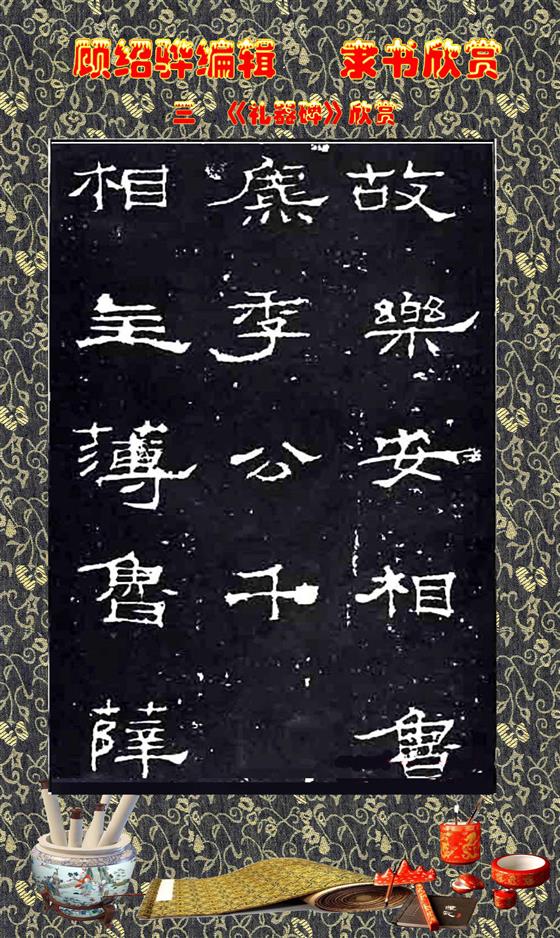 顾绍骅编辑 隶书欣赏
三 《礼器碑》欣赏
故樂安相魯
麃季公千
相主薄魯薛